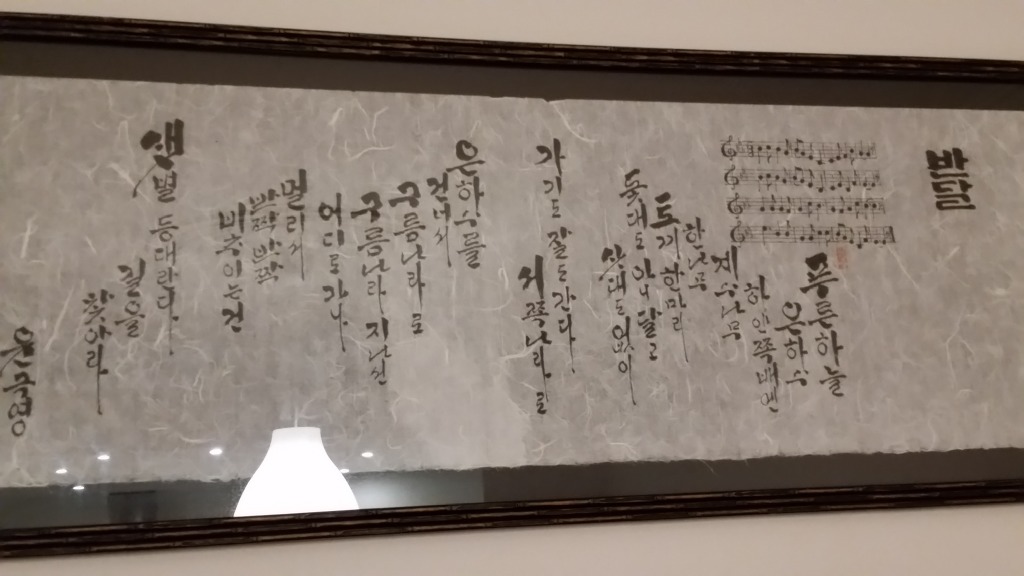 반달
푸른하늘
은하수
하얀쪽배엔
계수나무
한나무
토끼한마리
돛대도 아니달고
삿대도 없이
가기도 잘도 간다
서쪽나라로
은하수를
건너서
구름나라로
구름나라 지나선
어디로 가나
멀리서
반짝 반짝
비추이는건
샛별 등대란다
길을
찾아라
윤극영